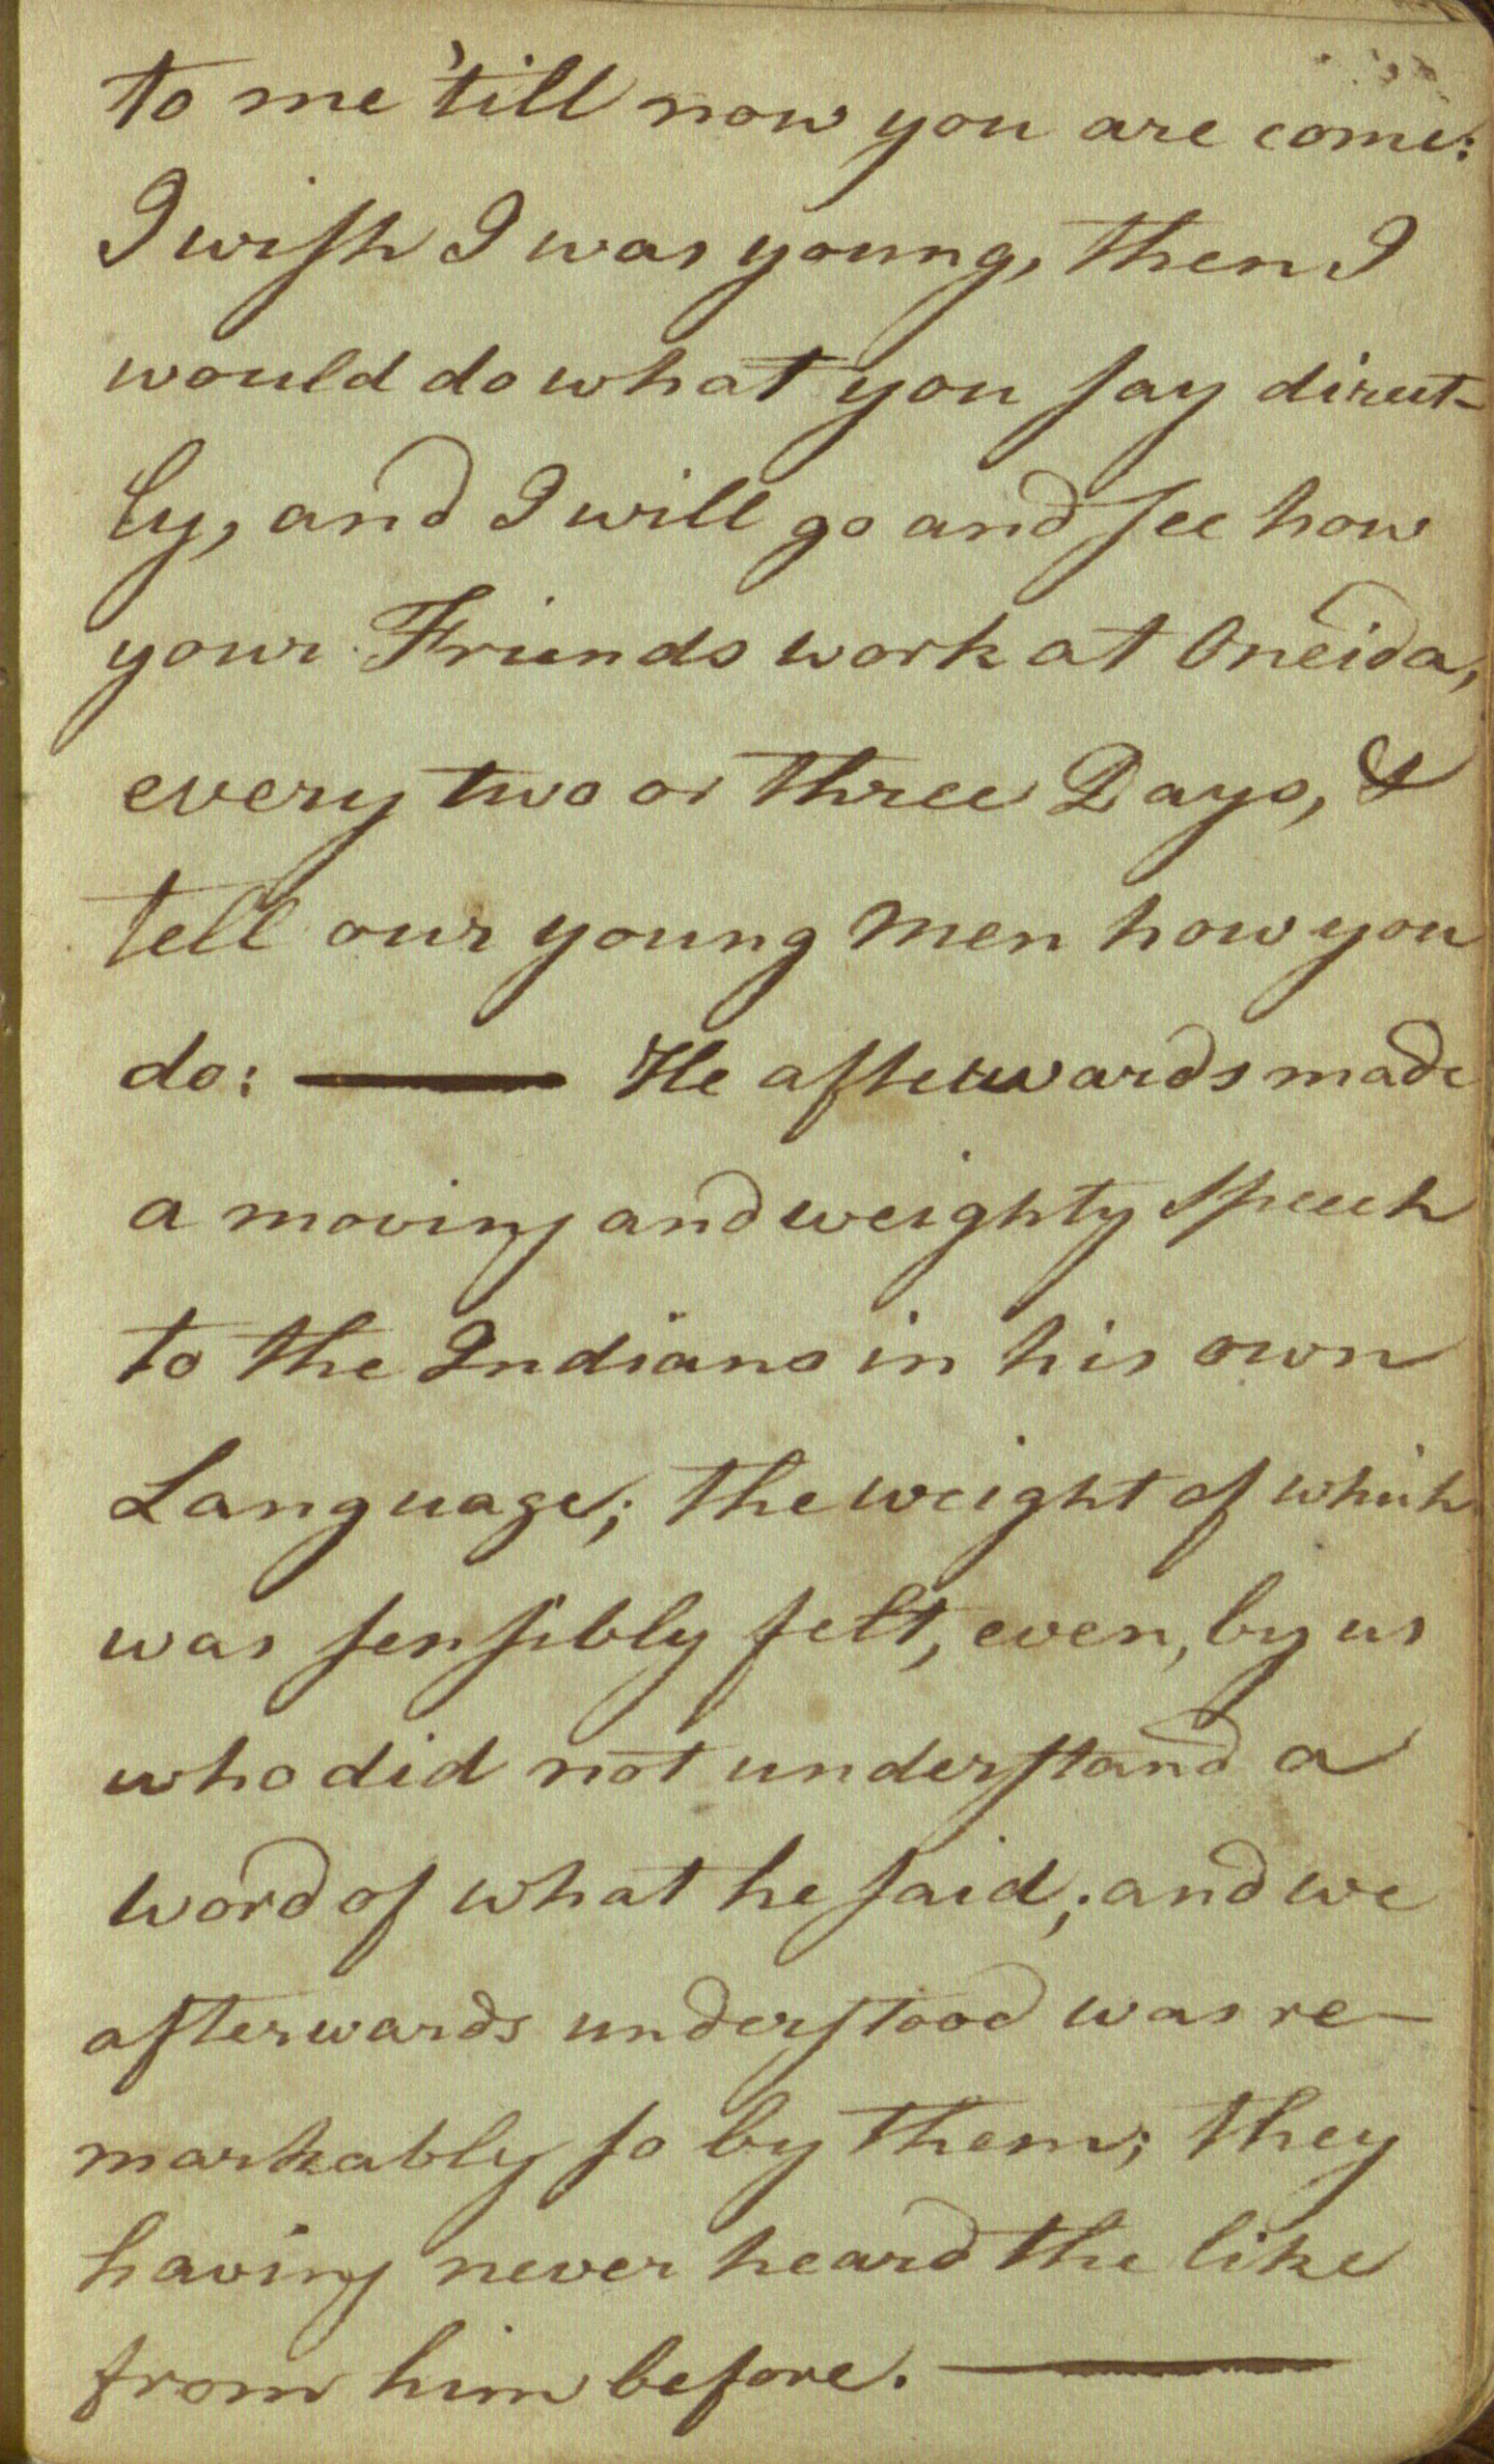 to me 'till now you are come:
I wiſh I was young, then I
would do what you ſay direct-
ly, and I will go and ſee how
your Friends work at Oneida,
every two or three Days, &
tell our young Men how you
do: — He afterwards made
a moving and weighty Speech
to the Indians in his own
Language; the weight of which
was ſenſibly felt, even, by us
who did not underſtand a
word of what he ſaid; and we
afterwards underſtood was re-
markably ſo by them; they
having never heard the like
from him before. —